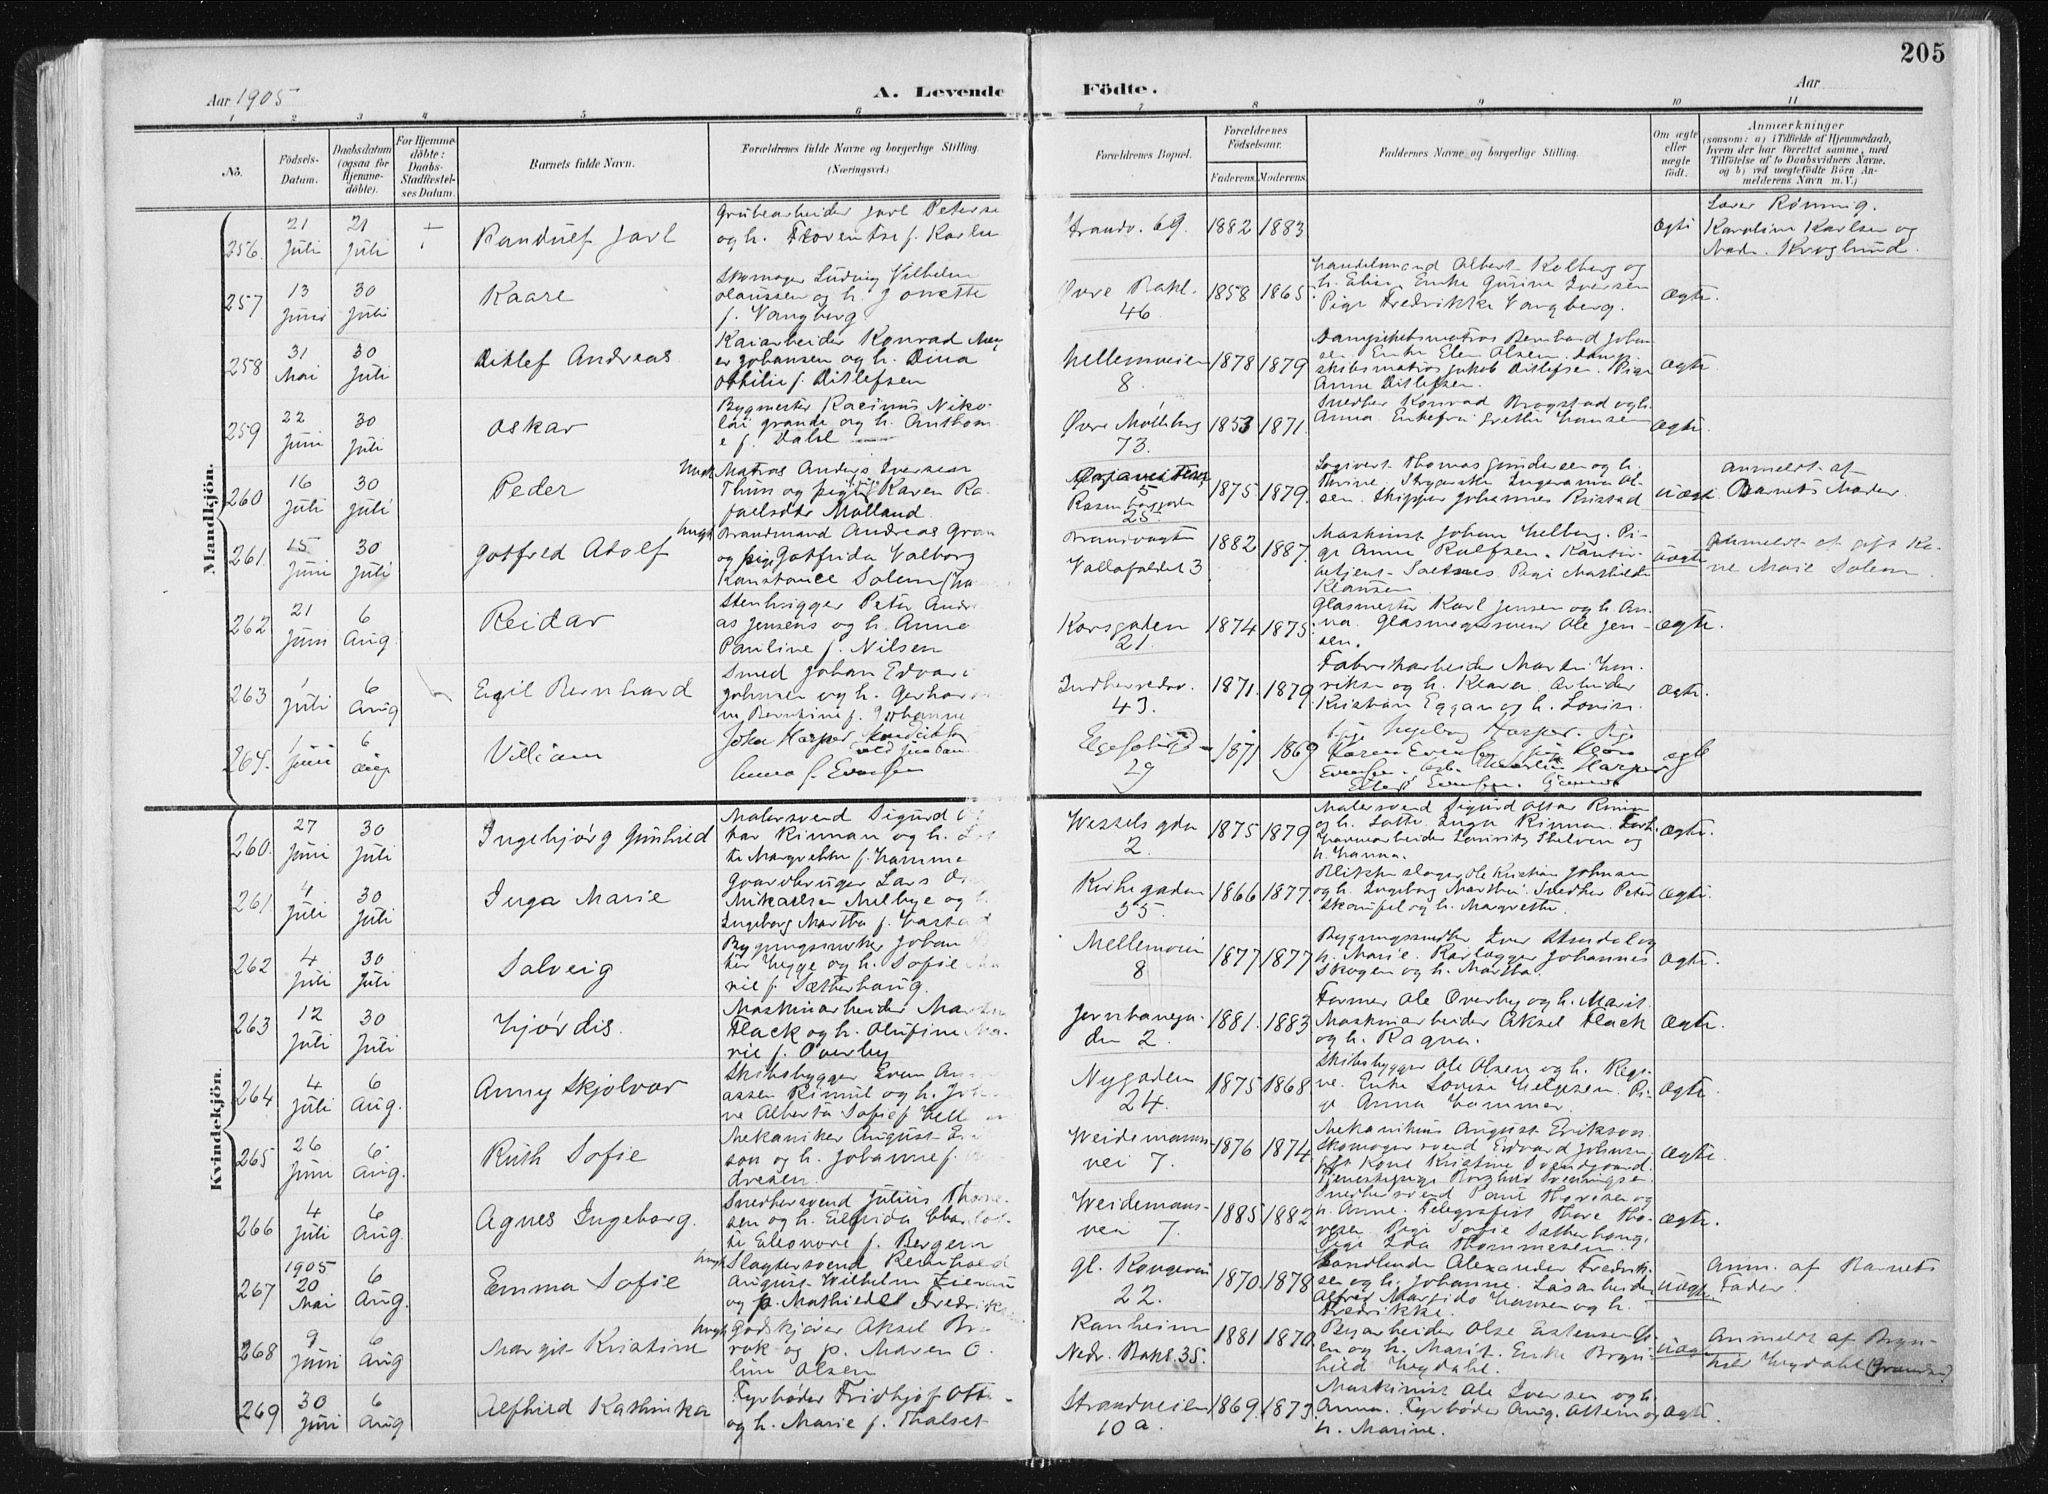 205
Aar 1905
A. Levende Födte.
Aar
1 2 3 4 5 6 7 8 9 10 11
No.
Födsels-Datum.
Daabsdatum (ogsaa for Hjemme-döbte).
For Hjemme-döbte: Daabs-Stadfæstel-ses Datum.
Barnets fulde Navn.
Forældrenes fulde Navne og borgerlige Stilling (Næringsvei.)
Forældrenes Bopæl.
Forældrenes Födselsaar.
Faderens. Moderens.
Faddernes Navne og borgerlige Stilling.
Om ægte eller uægte födt.
Anmærkninger
(saasom: a) i Tilfælde af Hjemmedaab, hvem der har forrettet samme, med Tilföielse af to Daabsvidners Navne, og b) ved uægtefödte Börn An-melderens Navn m. V.)
Mandkjön.
256. 21 Juli 21 Juli Randulf Jarl
Grubearbeider Jarl Peterse
og h. Florentse f. Karlse
Strandv. 69. 1882 1883 Ægte
Lærer Rönnig.
Karoline Karlsen og
Madm. Kroglund.
257 13 Juni 30 Juli Kaare
Skomager Ludvig Vilhelm
Olaussen og h. Jonette
f. Vangberg
Øvre Bakl. 46. 1858 1865
Handelsmand Albert Kolberg og
h. Elise. Enke Gurine Iversen
Pige Fredrikke Vangberg.
Ægte.
258 31 Mai 30 Juli Ditlef Andreas
Kaiarbeider Konrad Mey
er Johansen og h. Dina
Othilie f. Ditlefsen
Mellemveien 8. 1878 1879
Dampskibsmatros Bernhard Johan
sen. Enke Elen Olsen. Damp
skibsmatros Jakob Ditlefsen. Pige
Anna Ditlefsen.
Ægte.
259 22 Juni 30 Juli Oskar
Bygmester Rasinus Niko-
lai Grande og h. Anthon
e f. Dahl
Øvre Mölleberg 73. 1853 1871.
Snedker Konrad Brogstad og h.
Anna. Enkefru Grethe Hansen
Ægte.
260 16 Juli 30 Juli Peder
Matros Anders Iversen
Thun og pige Karen Ra-
faelsdtr Molland.
25. 1875 1879.
Logivert Thomas Gundersen og h.
Thrine. Ingeranna Ol-
sen. Skipper Johannes Ristad
uægte
Anmeldt af
Barnets Moder.
261. 15 Juni 30 Juli Gotfred Adolf
Brandmand Andreas Gran
og pige Gotfrida Valborg
Konstance Solem
Brandvagten
Vollafaldet 3 1882 1887.
Maskinist Johan Helberg. Pi-
ge Anna Rolfsen. Kontor-
betjent Saltnes. Pige Mathilde
Klausen
uægte
Anmeldt af gift Ka-
ne Marie Solem
262 21 Juni 6 Aug. Reidar
Stenhugger Peter Andr
as Jensens og h. Anna
Pauline f. Nilsen
Korsgaden 21. 1874 1875.
Glasmester Karl Jensen og h. An-
na. Glasmagersvend Ole Jen-
sen.
Ægte.
263 1 Juli 6 Aug Eigil Bernhard
Smed Johan Edvard
Johnsen og h. Gerhard
ne Berntine f. Johanne
Indherredsv. 43. 1871. 1879
Fabrikarbeider Martin Hen-
riksen og h. Klara. Arbeider
Kristian Eggan og h. Lovise.
Ægte.
264. 1 Juni 6 Aug William
John Harper
Anna f. Evensen
29 1871 1869
Pige Ingeborg Harper. Pige
ægte
Kvindekjön.
260. 27 Juni 30 Juli Ingebjörg Gunhild
Malersvend Sigurd O
tar Rinnan og h. Lot
te Margrethe f. Hamme
Wesselsgdn 2. 1875 1879
Malersvend Sigurd Ottar Rinnan
og h. Lotte. Inga Rinnan.
h. Hanna.
Ægte.
261 4 Juli 30 Juli Inga Marie
Gaardbruger Lars
Mikaelsen Melbye og h
Ingeborg Martha f. Hastad
Kirkegaden 55. 1866 1877.
Blikkenslager Ole Kristian Johnsen
og h. Ingeborg Marthe. Snedker Peter
Skoufel og h. Margrethe.
Ægte.
262 4 Juli 30 Juli Solveig
Bygningssnedker Johan P
ter Hegge og h. Sofie Ma
rie f. Sætherhaug.
Mellemveien 8 1877 1877
Bygningssnedker Iver Stendal og
h. Marie. Rørlægger Johannes
Skogen og h. Martha
Ægte.
263 12 Juli 30 Juli Hjördis.
Maskinarbeider Marten
Flack og h. Olufine Ma-
rie f. Overby
Jernbanega-den 2. 1881. 1883
Former Ole Overby og h. Marit.
Maskinarbeider Aksel Flack
og h. Ragna.
Ægte.
264 4 Juli 6 Aug. Anny Skjolvor
Skibsbygger Even An
assen Rimul og h. Joh
ne Alberta Sofie f. Hell
Nygaden 24. 1875 1868
Skibsbygger Ole Olsen og h. Regi-
ne. Enke Lovise Helgesen. Pi-
ge Anna Hammer.
Ægte.
265 26 Juni 6 Aug. Ruth Sofie
Mekaniker August Erik
son og h. Johanne f.
dresen.
Weidemanns-vei 7. 1876 1874.
Mekanikus August Erikson
Skomagersvend Edvard Johnsen
gift Kone Kristine Svendgaard.
Tjenestepige Borghild Svenningsen.
Ægte.
266 4 Juli 6 Aug. Agnes Ingeborg.
Snedkersvend Julius Thore-
sen og h. Elfrida Charlot-
te Eleonore f. Bergem
Weidemans-vei 7. 1885 1882
Snedkersvend Paul Thoresen og
h. Anne. Telegrafist Thore Tho-
resen. Pige Sofie Sætherhaug.
Pige Ida Thommesen.
Ægte.
267 1905 20 Mai 6 Aug. Emma Sofie
Slagtersvend Reinhold
August Wilhelm Zierau
og p. Mathilde Fredrikk
Gl. Kongevei 22. 1870. 1878
Handlende Alexander Fredrik-
sen og h. Johanne. Løsarbeider
Alfred Hansen og h.
Fredrikke.
uægte
Anm. af Barnets
Fader.
268 9 Juni 6 Aug Margit Kristine
Godskjører Aksel Br
rok og p. Maren O.
line Olsen
Ranheim
Nedr. Bakl. 35. 1881 1870.
Byarbeider Olse Estensen
en og h. Marit. Enke Bryn-
hild Hegdahl.
uægte
Anmeldt af Bryn-
hild Hegdahl
269 30 Juni 6 Aug Alfhild Kathinka
Fyrbøder Fridhjof Otte-
og h. Marie f. Thalset
Strandveien 10 a. 1869. 1873.
Maskinist Ole Iversen og h.
Anna. Fyrbøder Aug. Ottem og
h. Marine.
Ægte.